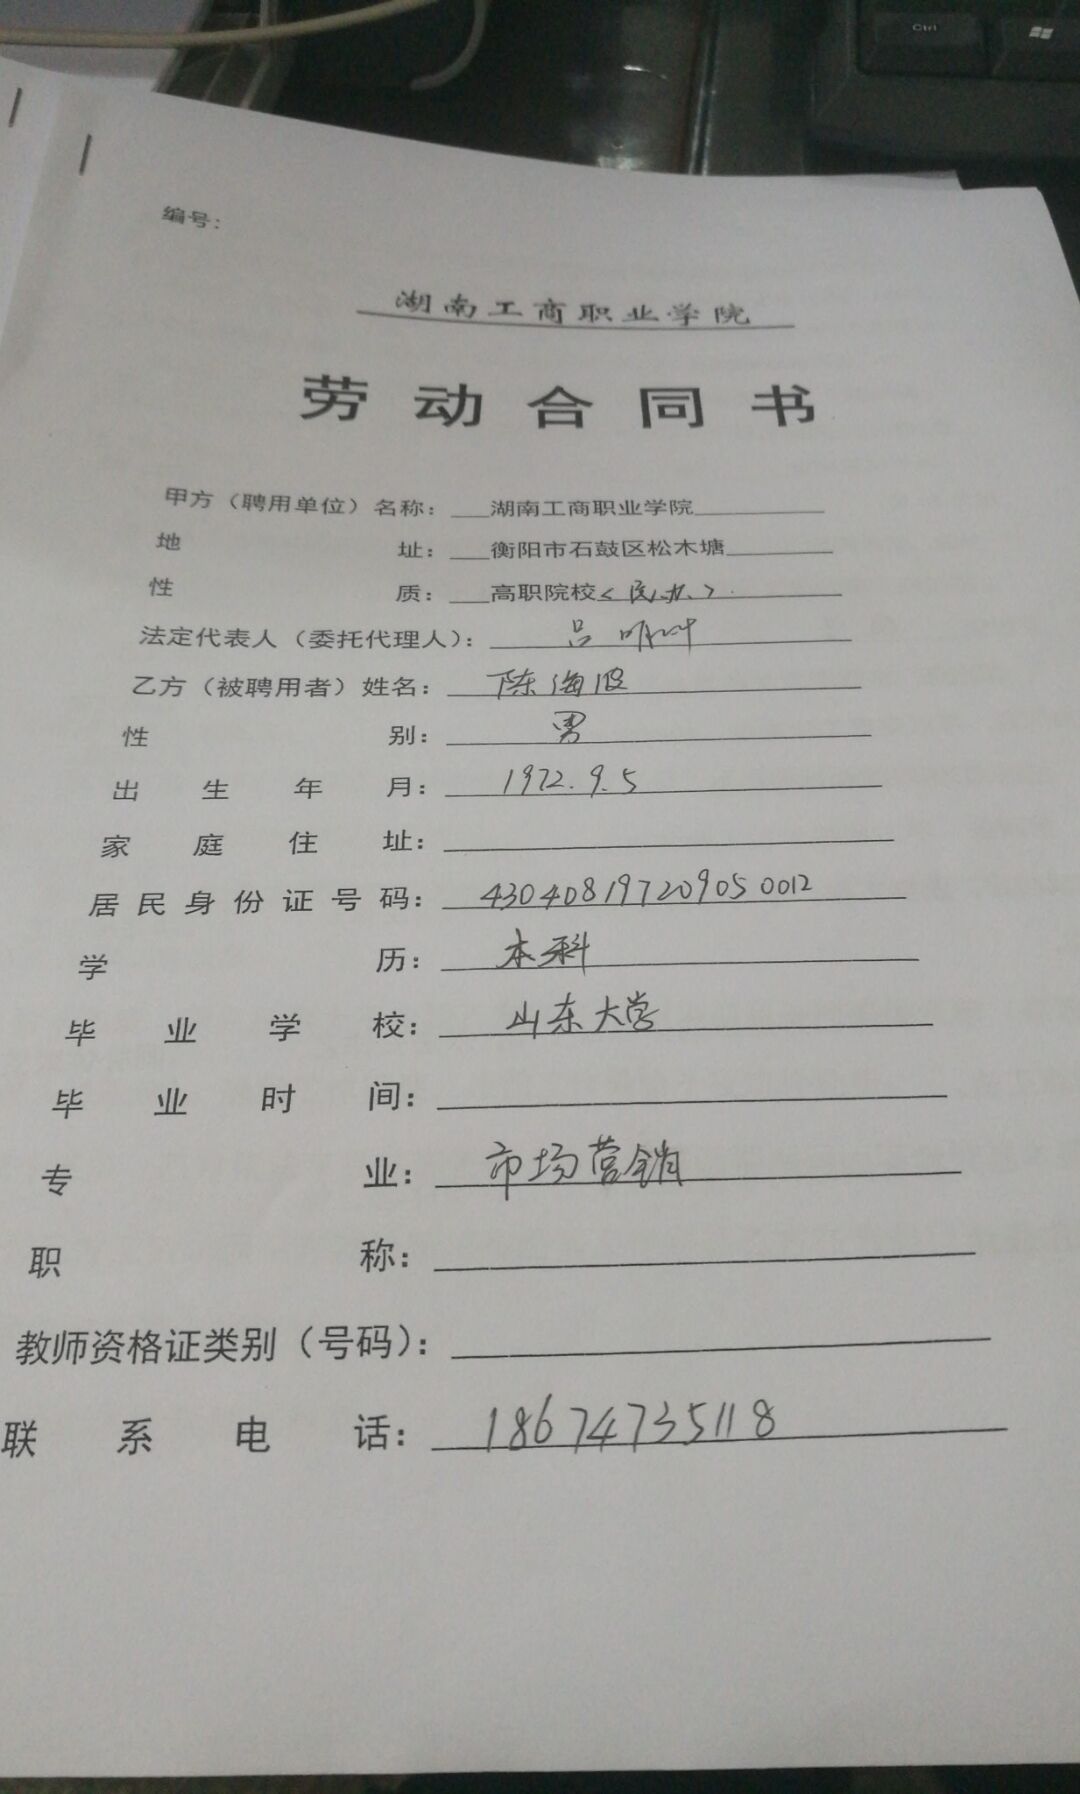 Ctrl
编号：
湖南工商职业学院
劳动合同书
甲方（聘用单位）名称：湖南工商职业学院
地址：衡阳市石鼓区松木塘
性质：高职院校<民办>
法定代表人（委托代理人）：吕
乙方（被聘用者）姓名：陈海波
性别：男
出生年月：1972.9.5
家庭住址：
居民身份证号码：4304081972090500012
学历：本科
毕业学校：山东大学
毕业时间：
专业：市场营销
职称：
教师资格证类别（号码）：
联系电话：18674735118